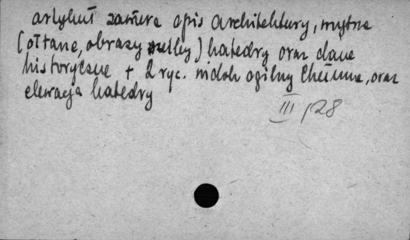 artykuł zawiera opis architektury, wnętrza
(ołtarze, obrazy, rzeźby) katedry oraz dane
historyczne + 2 ryc. widok ogólny Chełmna, oraz
elewacja katedry
III 128